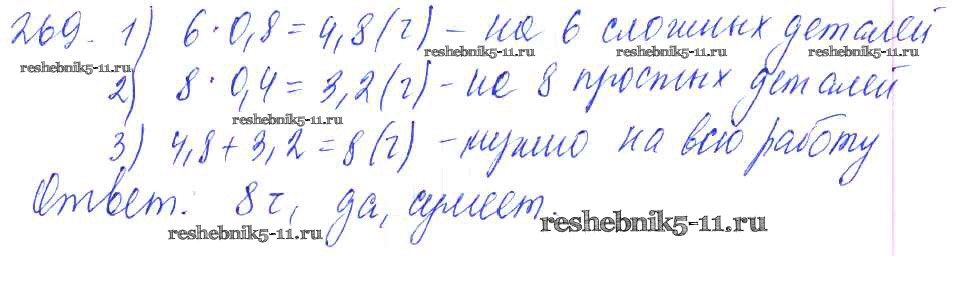 269. 1) 6·0,8=4,8(ч) – на 6 сложных деталей
reshebnik5-11.ru reshebnik5-11.ru reshebnik5-11.ru
2) 8·0,4=3,2(ч) – на 8 простых деталей
reshebnik5-11.ru
3) 4,8+3,2=8(ч) – нужно на всю работу
Ответ: 8ч, да, сумеет.
reshebnik5-11.ru reshebnik5-11.ru